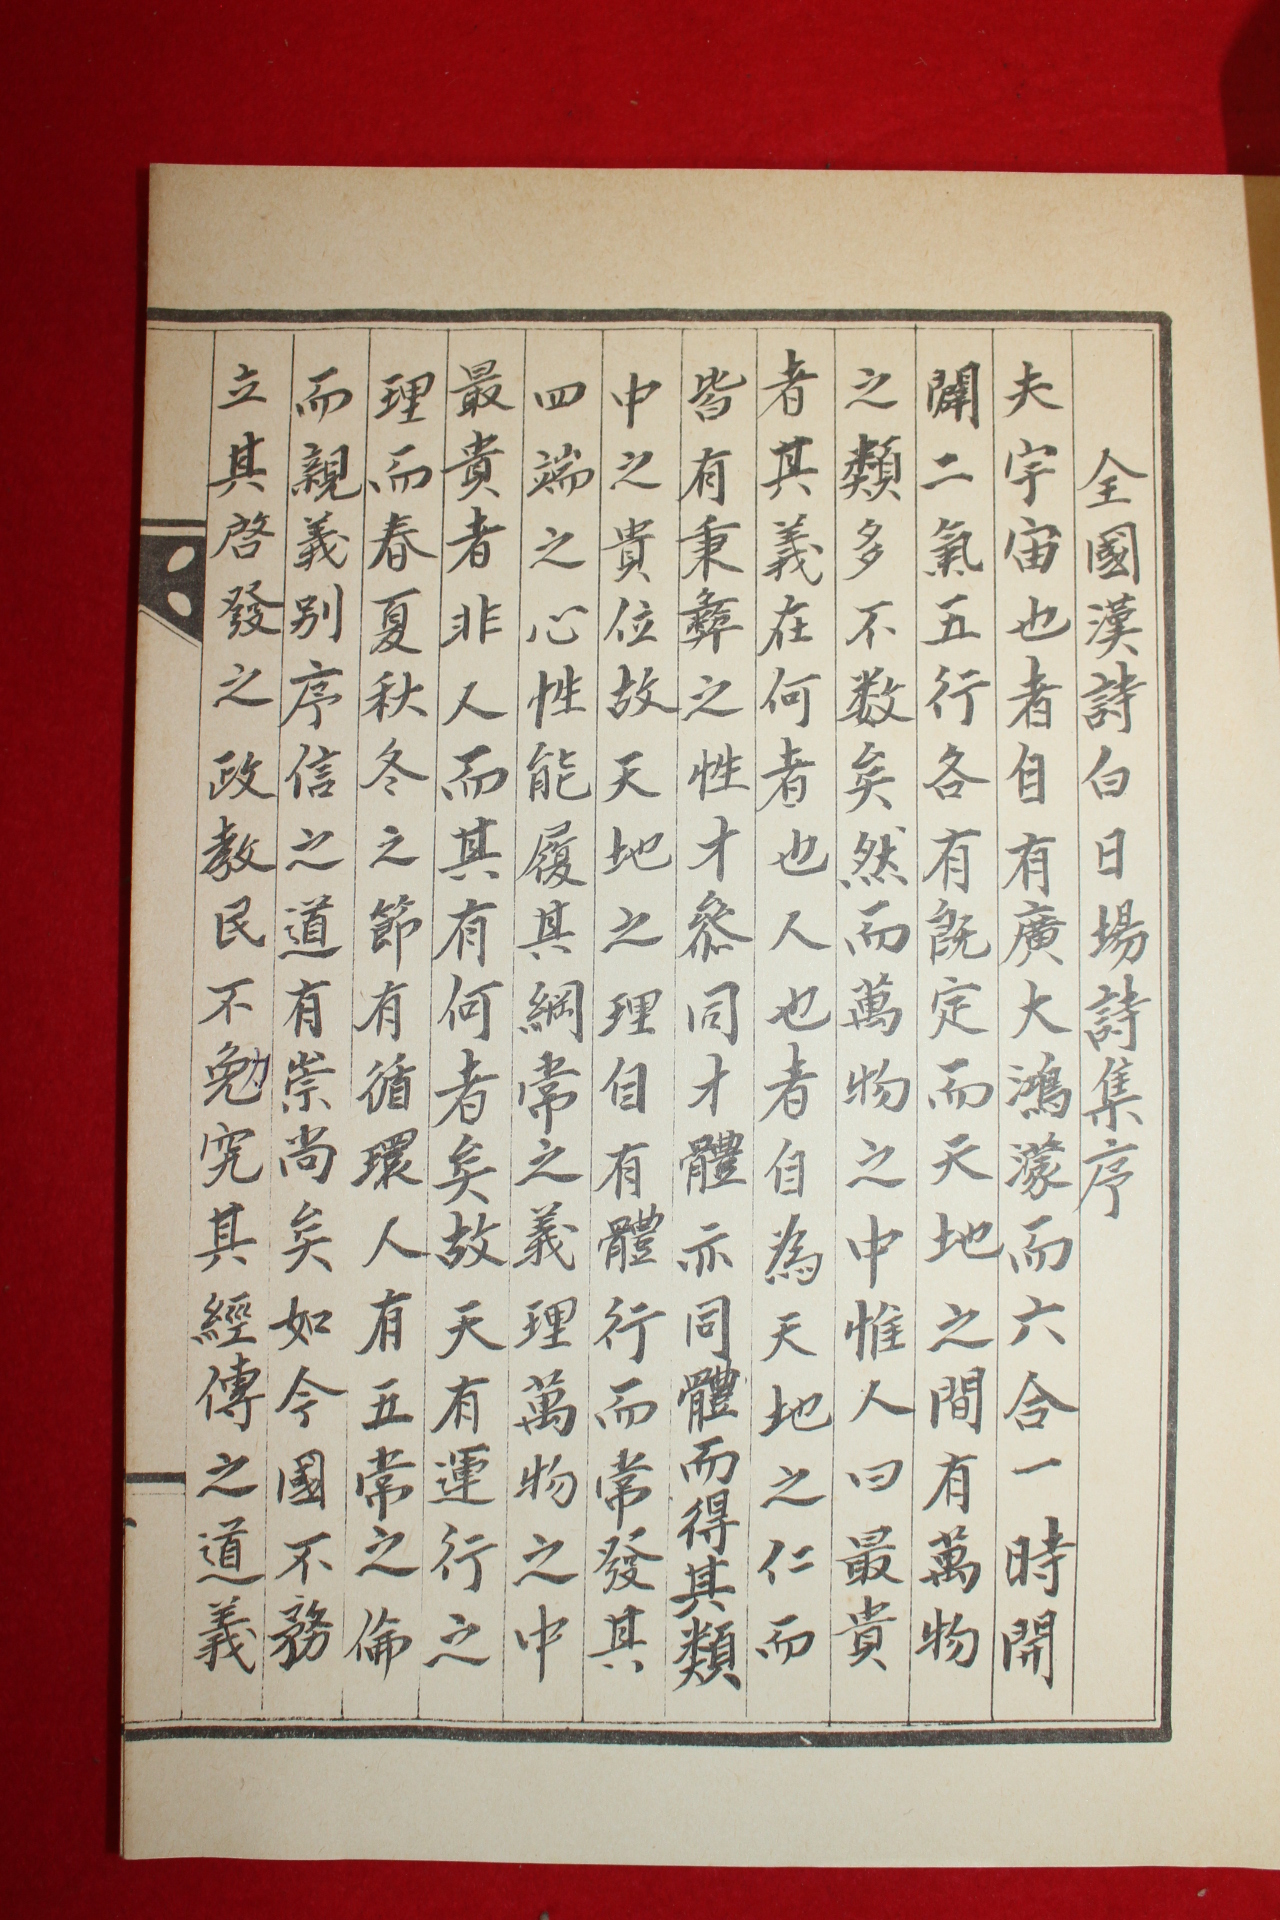 全國漢詩白日場詩集序
夫宇宙也者自有廣大鴻濛而六合一時開
闢二氣五行各有旣定而天地之間有萬物
之類多不数矣然而萬物之中惟人曰最貴
者其義在何者也人也者自為天地之仁而
皆有秉彛之性才叅同才體亦同體而得其類
中之貴位故天地之理自有體行而常發其
四端之心性能履其綱常之義理萬物之中
最貴者非人而其有何者矣故天有運行之
理而春夏秋冬之節有循環人有五常之倫
而親義别序信之道有崇尚矣如今國不務
立其啓發之政教民不勉究其經傳之道義